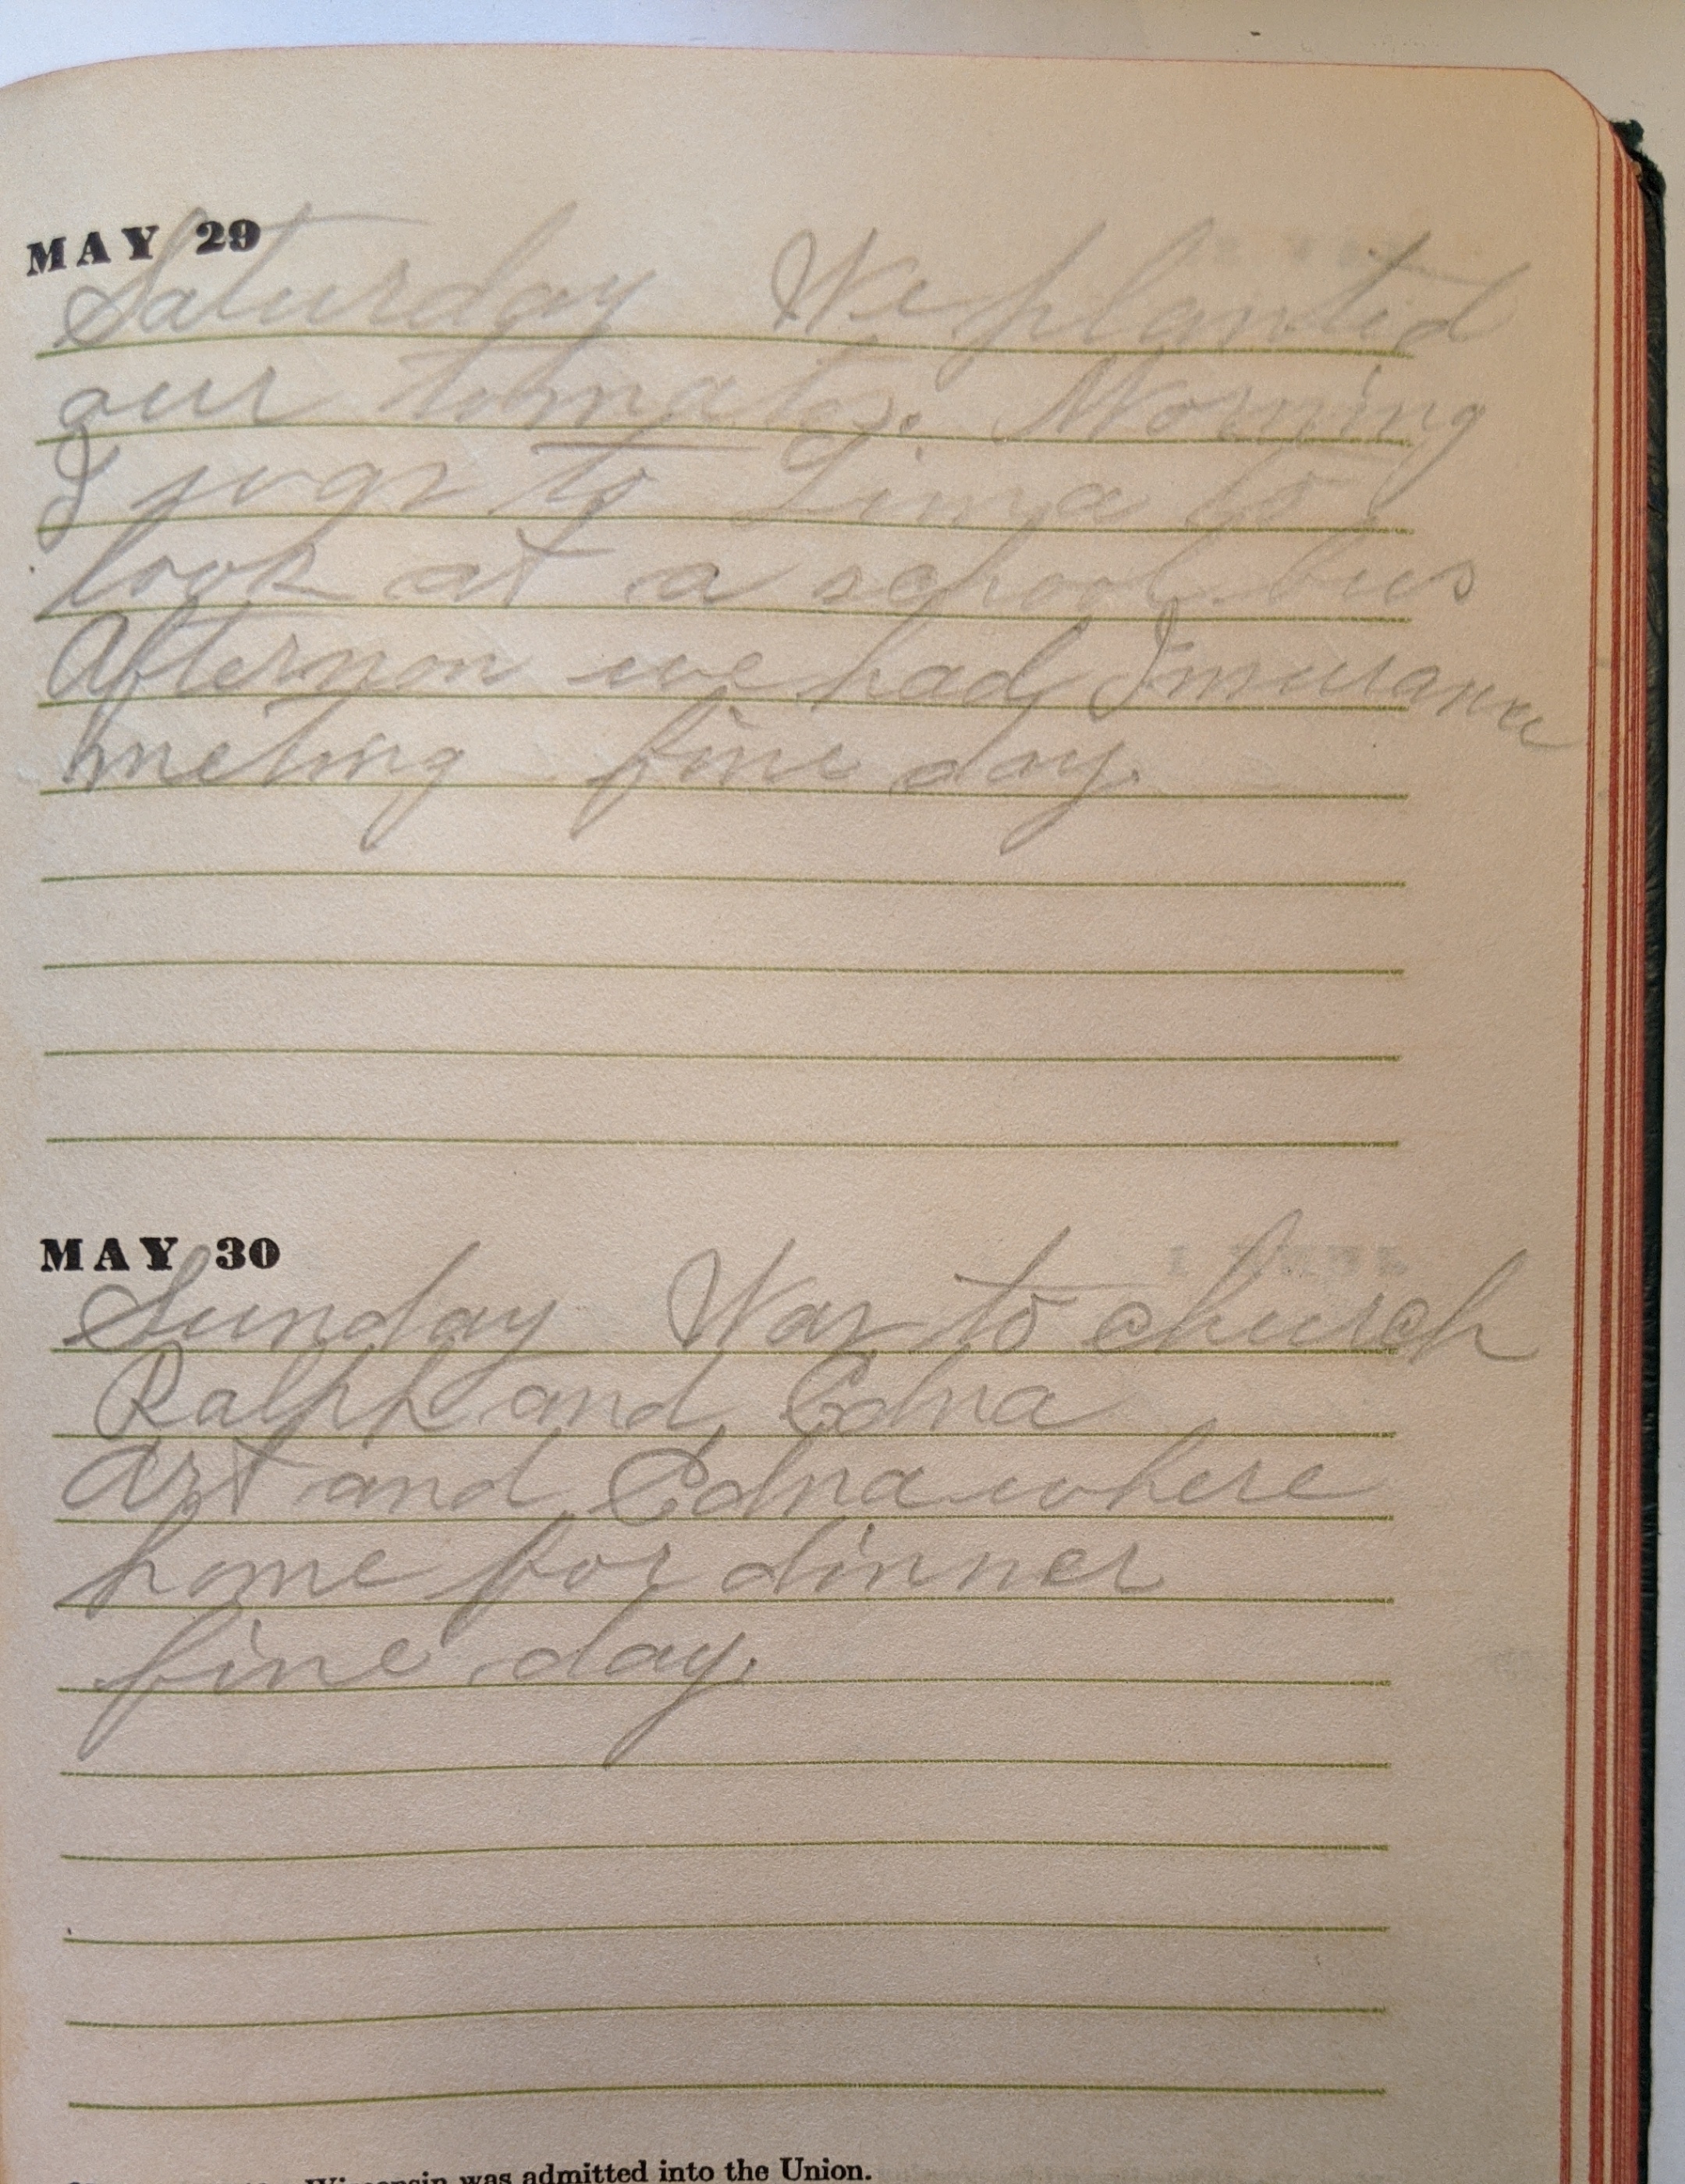 MAY 29
Saturday We planted
our tomatos. Morning
I was to Lima to
look at a school bus
Afternon we had Insurance
meting fine day.
MAY 30
Sunday Was to church
Ralph and Edna
Art and Edna where
home for dinner
fine day.
Wisconsin was admitted into the Union.